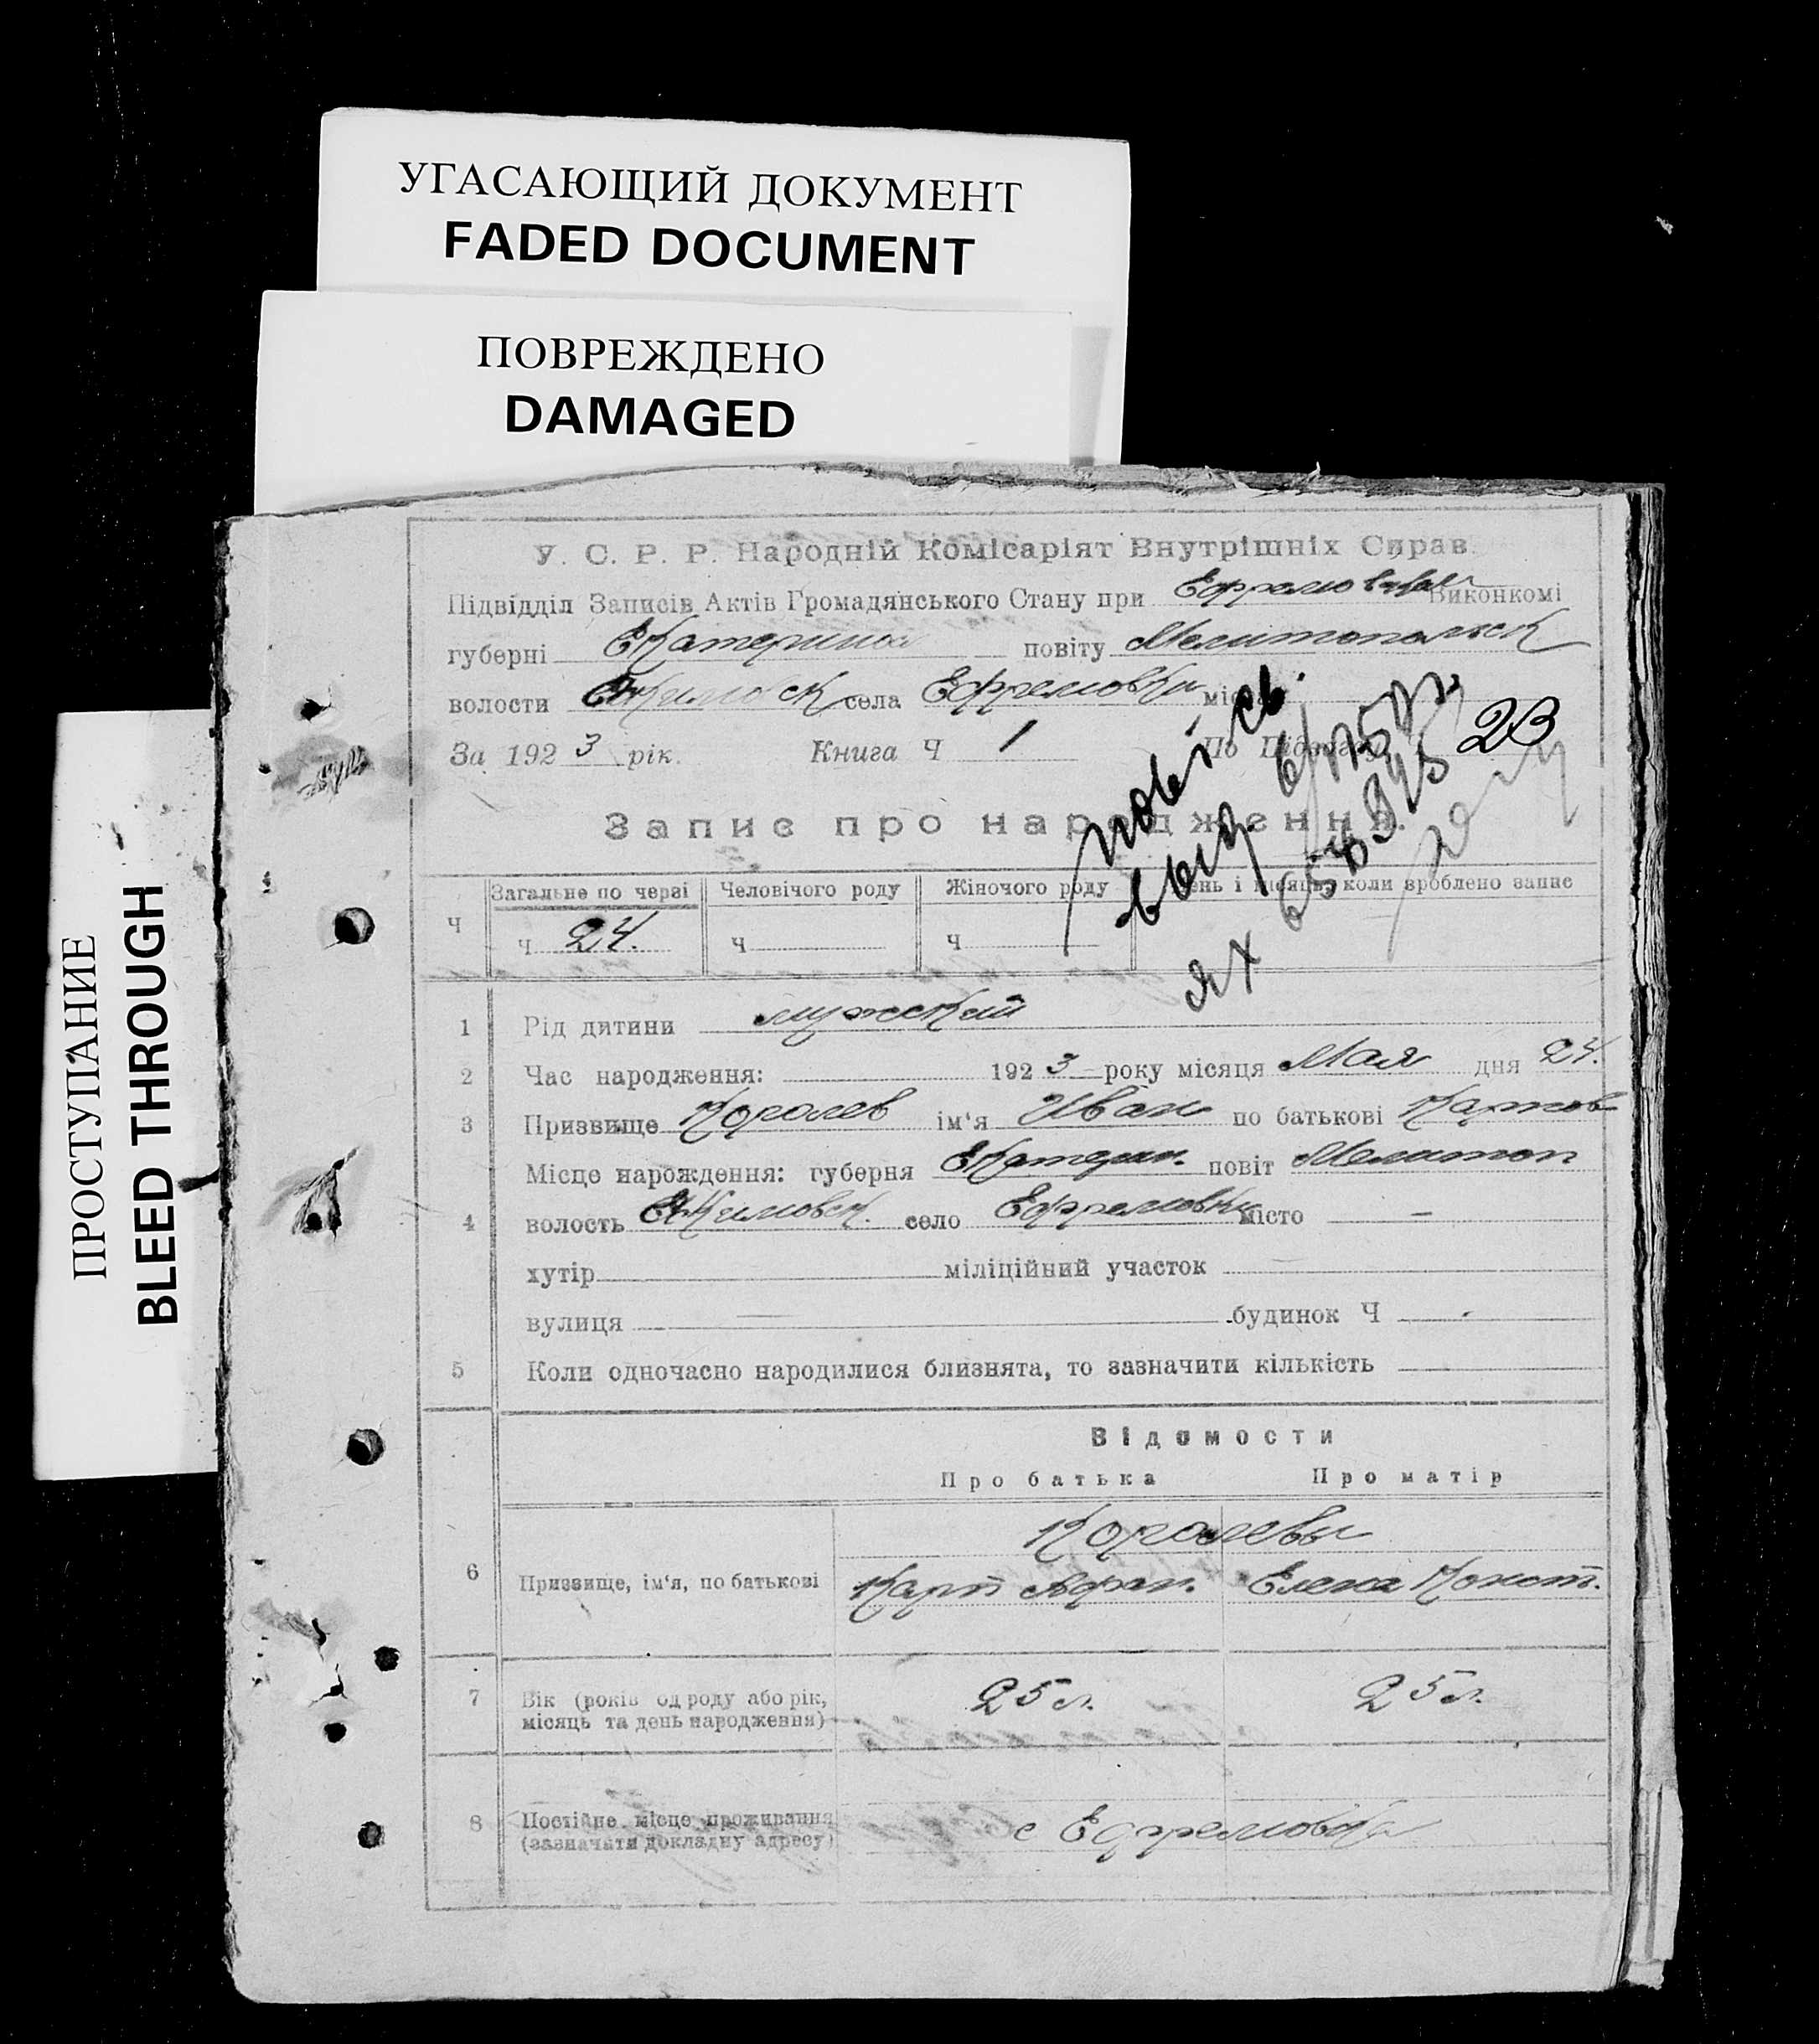 УГАСАЮЩИЙ ДОКУМЕНТ
FADED DOCUMENT
ПОВРЕЖДЕНО
DAMAGED
ПРОСТУПАНИЕ
BLEED THROUGH
У. С. Р. Р. Народній Комісаріят Внутрішніх Справ
Підвідділ Записів Актів Громадянського Стану при Виконкомі
губерні Екатерины повіту Мелитопольск
волости села Ефремовки
За 1923 рік. Книга Ч 1 23
повт. св.
Запис про народження.
Загальне по черзі Человічого роду Жіночого роду День і місяць, коли зроблено запис
Ч Ч 24. Ч Ч
1 Рід дитини мужский
2 Час народження: 1923 року місяця Мая дня 24.
3 Призвище Королев ім'я Иван по батькові Карпов
Місце нарождення: губерня Екатерин. повіт Мелитоп
4 волость Акимовск. село Ефремовки місто –
хутір міліційний участок
вулиця — будинок Ч
5 Коли одночасно народилися близнята, то зазначити кількість
Відомости
Про батька Про матір
Королевы
6 Призвище, ім'я, по батькові Карп Афан. Елена Конст.
7 Вік (років од роду або рік, 25 л. 25 л.
місяць та день народження)
8 Постійне місце проживання с Ефремовка
(зазначати докладну адресу)